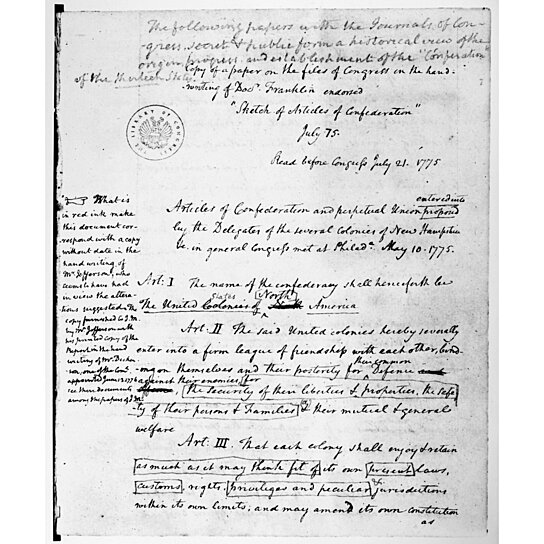 The following papers with the Journals of Con-
gress, secret & public form a historical view of the
origin, progress, and establishment of the "Confederation"
of the United States
Copy of a paper on the files of Congress in the hand-
writing of Doc.r Franklin endorsed
"Sketch of Articles of Confederation"
July 75.
Read before Congress July 21. 1775
THE LIBRARY OF CONGRESS
What is
in red ink make
this document cor-
respond with a copy
without date in the
hand writing of
Mr Jefferson, who
seems to have had
in view the altera-
tions suggested in the
copy furnished to J. M.
by Mr Jefferson with
his printed copy of the
Report in the hand
writing of Mr. Dickin-
son, one of the Com.
appointed June 12 1776
see these documents
among the papers of J. M.
entered into
Articles of Confederation and perpetual Union proposed
by the Delegates of the several Colonies of New Hampshire
&c. in general Congress met at Philad.a May 10. 1775.
Art: I The name of the confederacy shall henceforth be
States North
The United Colonies of America
Art: II The said United colonies hereby severally
enter into a firm league of friendship with each other, bind-
ing on themselves and their posterity for their common Defence
against their enemies for the security of their liberties & properties, the safe
ty of their persons & Families & their mutual & general
welfare
Art: III. That each colony shall enjoy & retain
as much as it may think fit of its own present laws,
customs, rights, privileges and peculiar jurisdictions
within its own limits; and may amend its own constitution
as